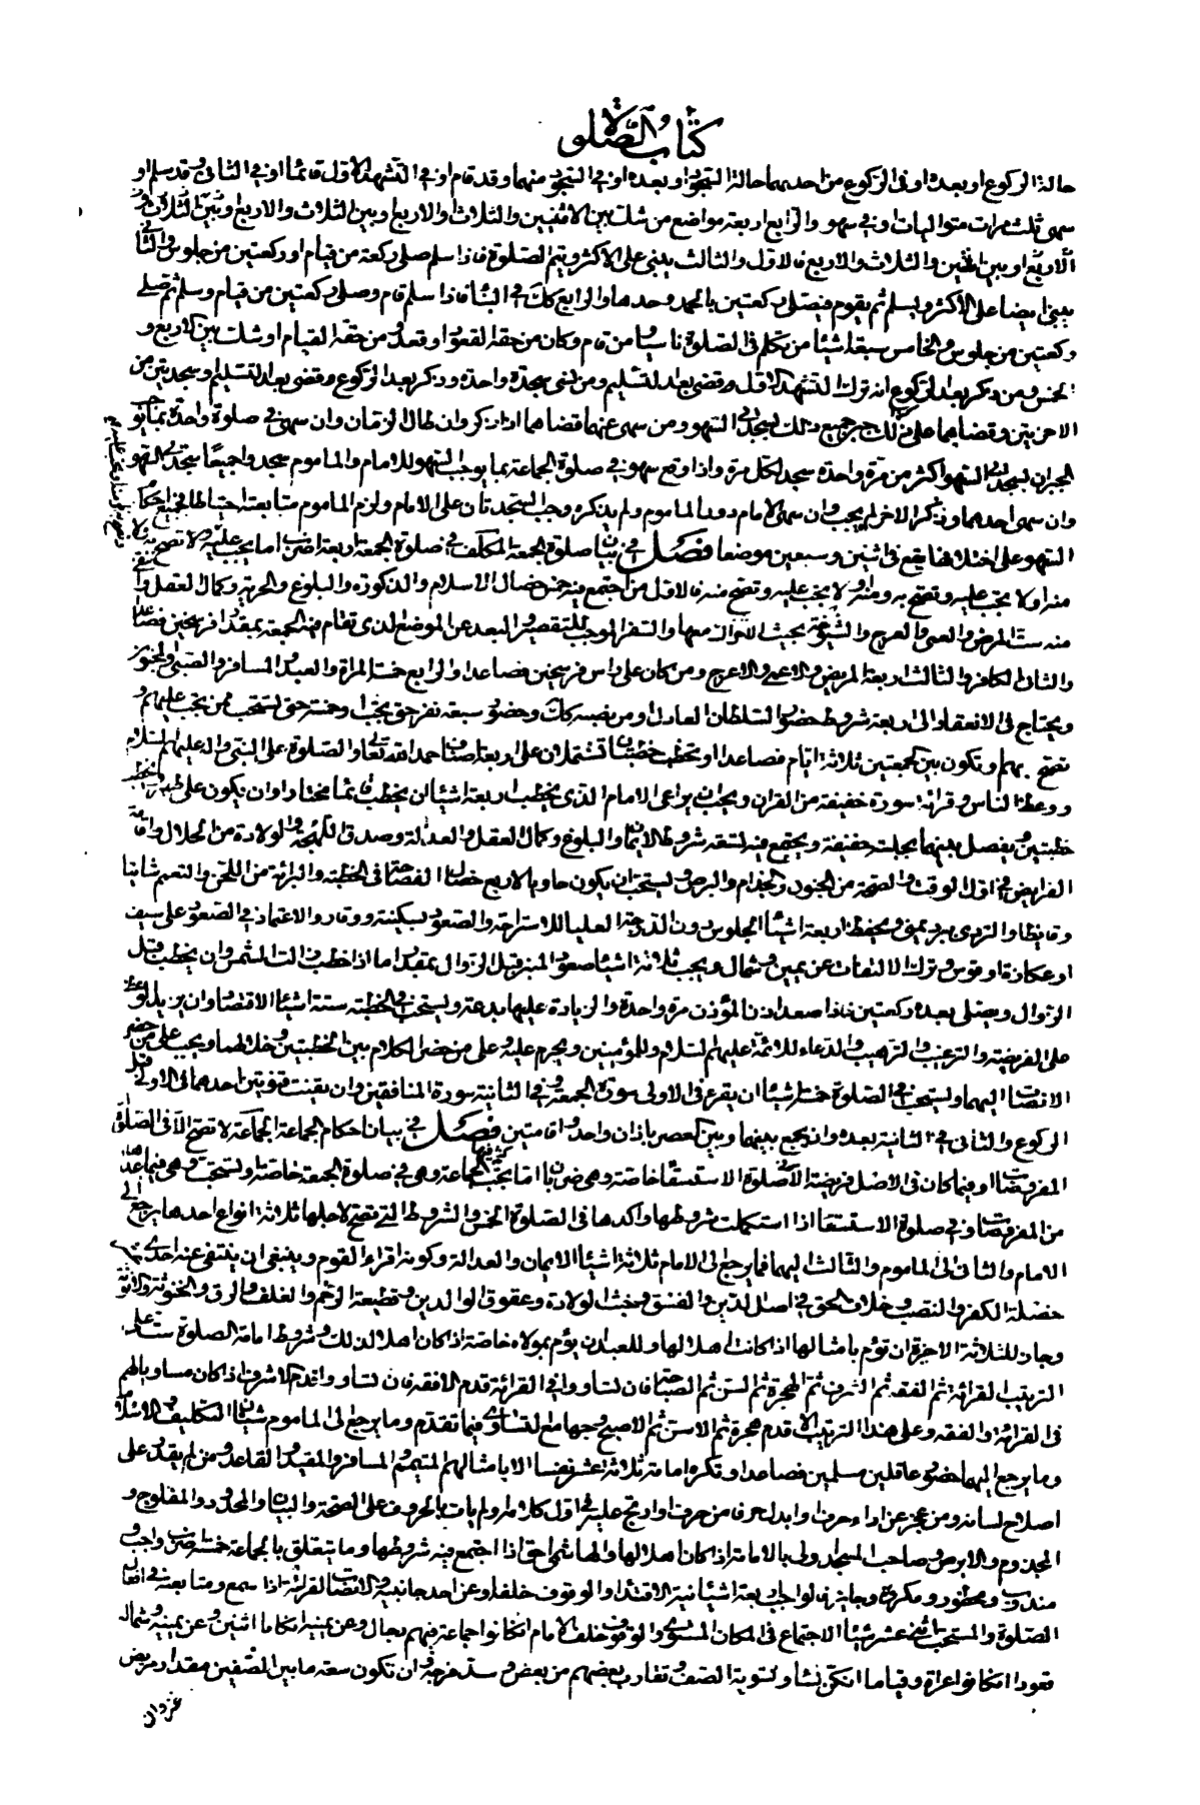 كتاب الصلوة
حالة الركوع او بعده او فى الركوع من احديهما حالة السجود او بعده او فى السجود منهما وقد قام او فى التشهد الاول قائما او فى الثانى وقد سلم او
سهى ثلث مرات متواليات او فى سهو والرابع اربعة مواضع من شك بين الاثنين والثلاث او الثلاث والاربع او بين الاثنين والثلاث والاربع
الاربع او بين اثنين والثلاث والاربع فالاول والثالث يبنى على الاكثر ويتم الصلوة فاذا سلم صلى ركعة من قيام او ركعتين من جلوس والثانى
يبنى ايضا على الاكثر ويسلم ثم يقوم فيصلى ركعتين بالحمد وحدها والرابع كذلك فى البناء فاذا سلم قام وصلى ركعتين من قيام وسلم ثم صلى
ركعتين من جلوس والخامس سبعة اشياء من تكلم فى الصلوة ناسيا ومن قام وكان من حقه القعود او قعد ومن حقه القيام او شك بين الاربع و
الخمس ومن ذكر بعد الركوع انه ترك التشهد الاول وقضى بعد التسليم ومن نسى سجدة واحدة وذكر بعد الركوع وقضى بعد التسليم وسجدتين من
الاخريتين وقضاهما على ذلك جبر جميع ذلك بسجدتى السهو ومن سهى عنهما قضاهما اذا ذكر وان طال الزمان وان سهى فى صلوة واحدة بما يوجب
الجبران بسجدتى السهو اكثر من مرة واحدة سجد لكل مرة واذا وقع سهو فى صلوة الجماعة بما يوجب السهو للامام والماموم سجد واجميعا سجدتى السهو
وان سهى احدهما وذكر الاخر لم يجب وان سهى الامام دون الماموم ولم يذكره وجب السجدتان على الامام ولزم الماموم متابعته احتياطا فجميع احكام
السهو على اختلافها تقع فى اثنين وسبعين موضعا فصل فى بيان صلوة الجمعة المكلف فى صلوة الجمعة اربعة اضرب اما يجب عليه ولا تصح
منه او لا يجب عليه وتصح به ومنه او لا يجب عليه وتصح منه فالاول من اجتمع فيه خصال الاسلام والذكورة والبلوغ والحرية وكمال العقل و
منه ستة المرض والعمى والعرج والشيخوخة بحيث لا حراك معها والسفر الموجب للتقصير والبعد عن الموضع الذى تقام فيه الجمعة بمقدار فرسخين فصاعدا
والثانى الكافر والثالث اربعة المريض والاعمى والاعرج ومن كان على راس فرسخين فصاعدا والرابع خمسة المراة والعبد والمسافر والصبى والمجنون
ويحتاج فى الانعقاد الى اربعة شروط حضور السلطان العادل او من نصبه لذلك وحضور سبعة نفر حتى يجب او خمسة حتى تستحب ممن يجب عليهم و
تصح بهم وتكون بين الجمعتين ثلاثة اميال فصاعدا او تخطب خطبتان تشتملان على اربعة اصناف حمد الله تعالى والصلوة على النبى واله عليهم السلام
ووعظ الناس وقرائة سورة خفيفة من القران ويجب ان يراعى الامام الذى يخطب اربعة اشياء ان يخطب قائما مختارا وان يكون على طهر
خطبتين ويفصل بينهما بجلسة خفيفة ويجتمع فيه تسعة شروط الايمان والبلوغ وكمال العقل والعدالة وصدق اللهجة والولادة من الحلال واقامة
الفرايض فى اول الوقت والصحة من الجنون والجذام والبرص ويستحب ان يكون حاويا لاربع خصال الفصاحة فى الخطبة والبرائة من اللحن والتعمم شاتيا
وقايظا والتردى ببرد يمنى ويحفظ اربعة اشياء الجلوس دون الدرجة العليا للاستراحة والصعود بسكينة ووقار والاعتماد فى الصعود على سيف
او عكازة او قوس وترك الالتفات عن يمين وشمال ويجب ثلاثة اشياء صعود المنبر قبل الزوال بمقدار ما اذا خطب زالت الشمس وان يخطب قبل
الزوال ويصلى بعده ركعتين فاذا صعد اذن المؤذن مرة واحدة والزيادة عليها بدعة ويستحب فى الخطبة ستة اشياء الاقتصاد وان يزيد الوعظ
على الفريضة والترغيب والترهيب والدعاء للائمة عليهم السلام وللمؤمنين ويحرم عليه وعلى من حضر الكلام بين الخطبتين وخلالهما ويجب على من حضر
الانصات اليهما ويستحب فى الصلوة خمسة اشياء ان يقرء فى الاولى سورة الجمعة وفى الثانية سورة المنافقين وان يقنت قنوتين احدهما فى الاولى قبل
الركوع والثانى فى الثانية بعده وان يجمع بينهما وبين العصر باذان واحد واقامتين فصل فى بيان احكام الجماعة الجماعة لا تصح الا فى الصلوة
المفروضة او فيما كان فى الاصل فريضة الا فى صلوة الاستسقاء خاصة وهى ضربان اما يجب فيه الجماعة وهى فى صلوة الجمعة خاصة او تستحب وهى فيما عداها
من المفروضة وفى صلوة الاستسقاء اذا استكملت شروطها واكدها فى الصلوة الخمس والشروط التى تصح لاجلها ثلاثة انواع احدها يرجع الى
الامام والثانى الى الماموم والثالث اليهما فما يرجع الى الامام ثلاثة اشياء الايمان والعدالة وكونه اقرء القوم وينبغى ان ينتفى عنه احدى عشرة
خصلة الكفر والنصب وخلاف الحق فى اصل الدين والفسق وخبث الولادة وعقوق الوالدين وقطيعة الرحم والغلف والرق والخنوثة والانوثة
وجاز للثلاثة الاخيرة ان تؤم بامثالها اذا كانت اهلا لها وللعبد ان يؤم بمولاه خاصة اذا كان اهلا لذلك وشروط امامة الصلوة ستة على
الترتيب القرائة ثم الفقه ثم الشرف ثم الهجرة ثم السن ثم الصباحة فان تساووا فى القرائة قدم الافقه فان تساووا قدم الاشرف اذا كان مساويا لهم
فى القرائة والفقه وعلى هذا الترتيب الاقدم هجرة ثم الاسن ثم الاصبح وجها مع التساوى فيما تقدم وما يرجع الى الماموم شيئان التكليف والاسلام
وما يرجع اليهما حضور عاقلين مسلمين فصاعدا وتكره امامة ثلاثة عشر نفسا الا بامثالهم المتيمم والمسافر والمقيد والقاعد ومن لم يقدر على
اصلاح لسانه ومن عجز عن اداء حرف او ابدل حرفا من حرف او ارتج عليه فى اول كلامه ولم يات بالحروف على الصحة والبيان والمحدود والمفلوج و
المجذوم والابرص وصاحب المسجد اولى بالامامة اذا كان اهلا لها والهاشمى احق اذا اجتمع فيه شروطها وما يتعلق بالجماعة خمسة اضرب واجب و
مندوب ومحظور ومكروه وجايز فالواجب اربعة اشياء نية الاقتداء والوقوف خلفه او عن احد جانبيه والانصات لقرائته اذا سمع ومتابعته فى افعال
الصلوة والمستحب تسعة عشر شيئا الاجتماع فى المكان المستوى والوقوف خلف الامام ان كانوا جماعة فيهم رجال وعن يمينه ان كانا اثنين وعن يمينه وشماله
قعودا ان كانوا عراة وقياما ان كن نساء وتسوية الصف وتقارب بعضهم من بعض وسد فرجة وان تكون سعة ما بين الصفين مقدار مربض